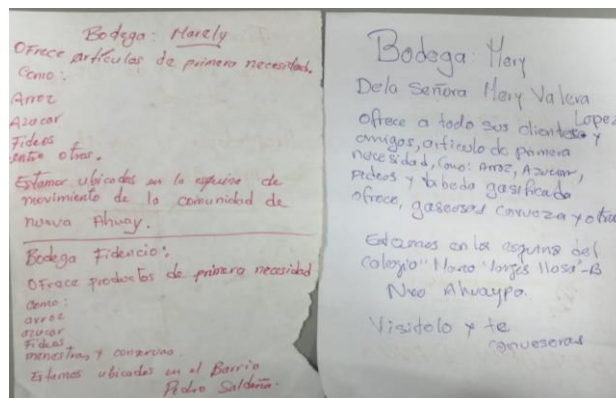 Bodega: Marely
Ofrece artículos de primera necesidad.
Como:
Arroz
Azocar
Fideos
entre otros.
Estamos ubicados en la esquina de
movimiento de la comunidad de
nueva Ahuay.
Bodega Fidencio:
Ofrece productos de primera necesidad
como:
arroz
azucar
Fideos
menestras y conservas.
Estamos ubicados en el Barrio
Pedro Saldaña.
Bodega: Mery
Dela Señora Mery Valera
Lopez
Ofrece a todo sus clientes y
amigos, articulo de primera
necesidad, como: Arroz, Azucar,
Fideos y gasificada
ofrece, gaseosas cerveza y otros
Estamos en la esquina del
colegio "Mario Vargas llosa"-B
Nvo Ahuaypa.
Visidolo y te